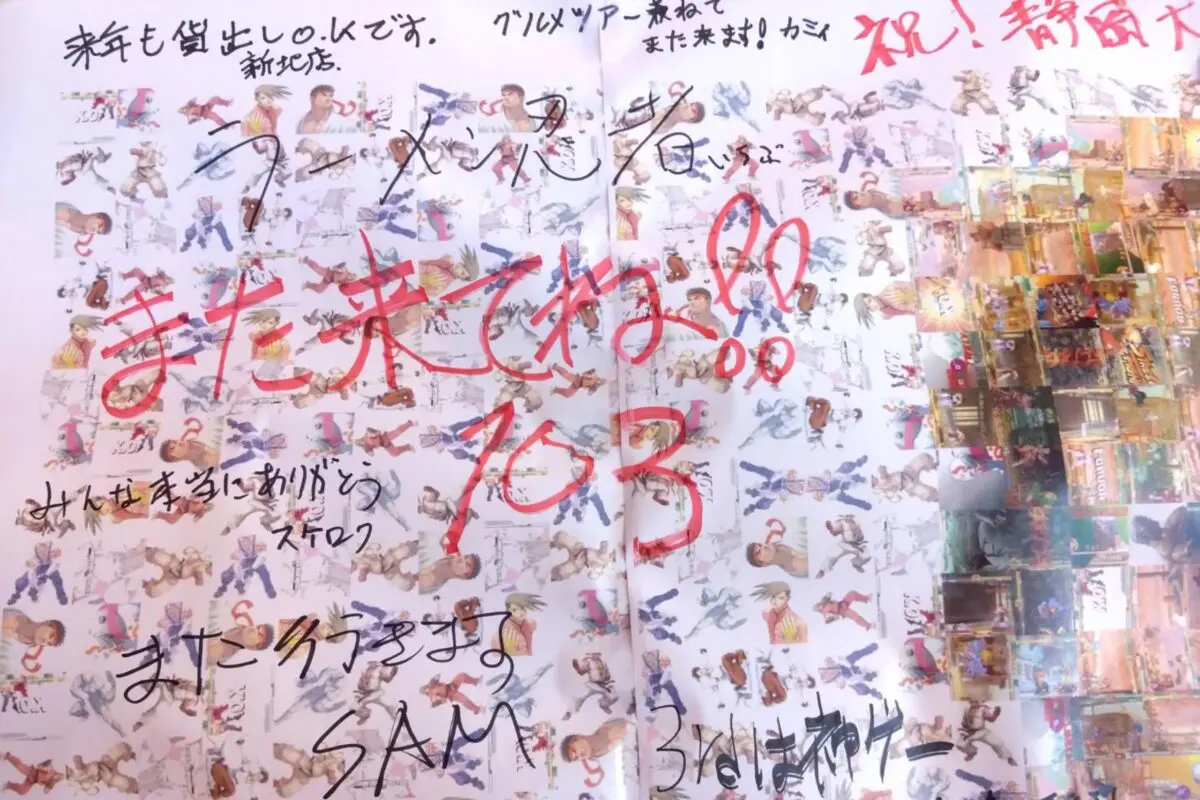 来年も貸出しO.Kです.
新北店.
グルメツアー兼ねて
また来ます! カミィ
祝! 静岡大
ラーメン忍者 いちぶ
また来てね!!
703
みんな本当にありがとう
スケロク
また行きます
SAM
3rdは神ゲー